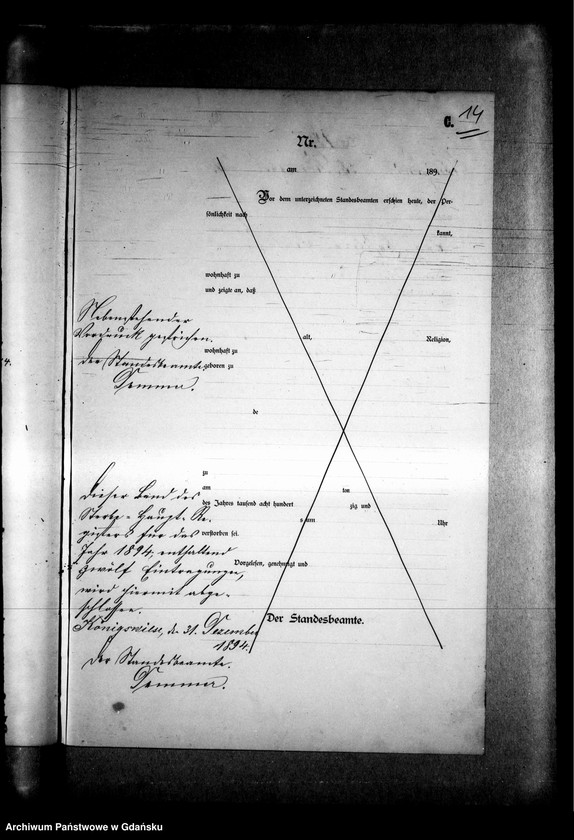 C. 14
Nr.
am 189.
Vor dem unterzeichneten Standesbeamten erschien heute, der Per-
sönlichkeit nach
kannt,
wohnhaft zu
und zeigte an, daß
Nebenstehender
Vordruck gestrichen.
alt, Religion,
wohnhaft zu
Der Standesbeamte.
geboren zu
Demmer.
de
zu
am ten
Dieser Band des
des Jahres tausend acht hundert zig und
Sterbe-Haupt-Re-
s um Uhr
gisters für das
verstorben sei.
Jahr 1894, enthaltend
Vorgelesen, genehmigt und
zwölf Eintragungen,
wird hiermit abge-
schlossen.
Der Standesbeamte.
Königswiese, den 31. Dezember
1894.
Der Standesbeamte.
Demmer.
4.
Archiwum Państwowe w Gdańsku